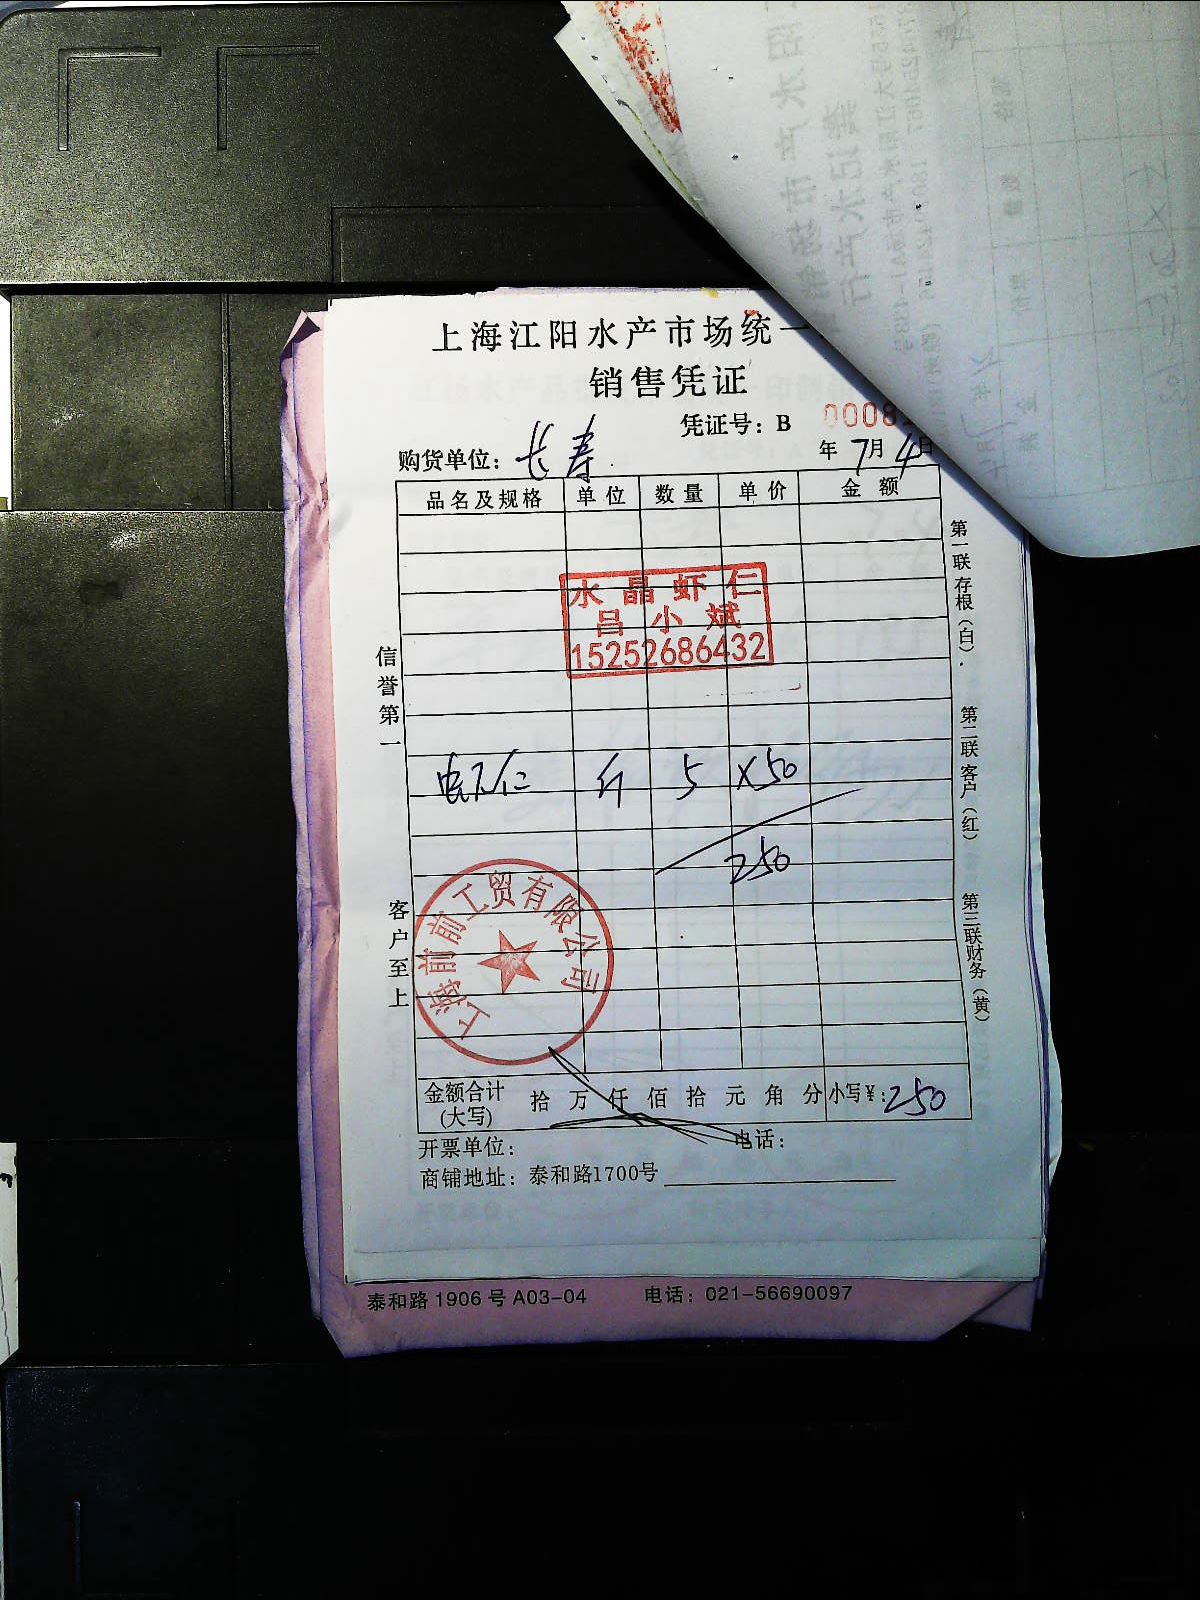 上海江阳水产市场统一
销售凭证
凭证号：B 0008
购货单位：长寿 年7月4日
品名及规格 单位 数量 单价 金额
水晶虾仁
吕小斌
15252686432
虾仁 斤 5 ×50
250
上海前前工贸有限公司
金额合计(大写) 拾 万 仟 佰 拾 元 角 分 小写¥：250
开票单位： 电话：
商铺地址：泰和路1700号
信誉第一
客户至上
第一联存根（白）.
第二联客户（红）
第三联财务（黄）
泰和路1906号A03-04 电话：021-56690097